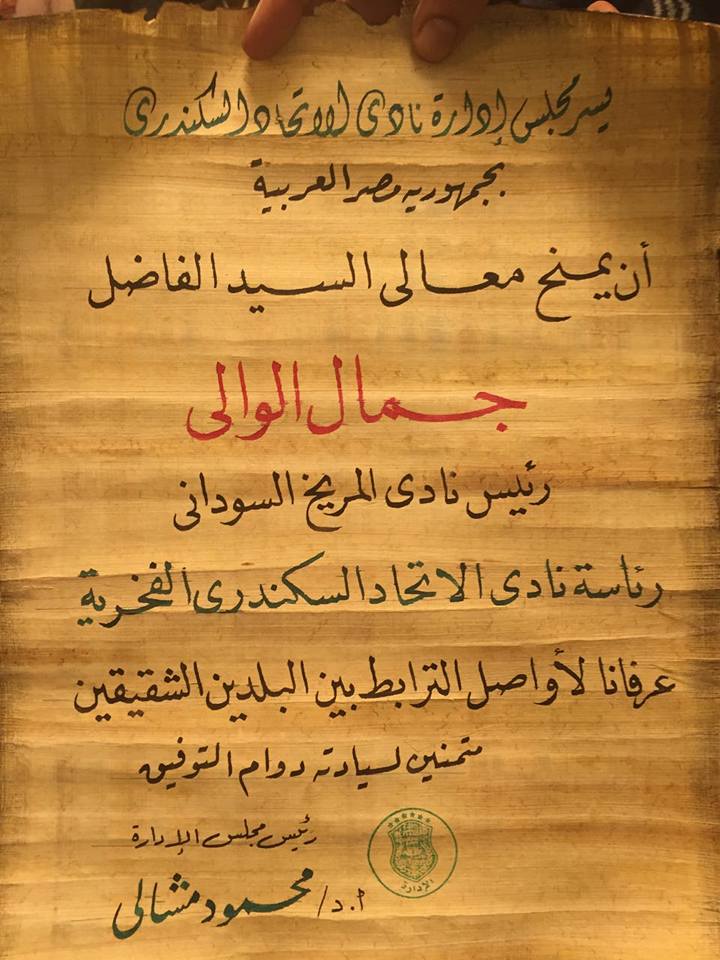 يسر مجلس إدارة نادى الاتحاد السكندرى
بجمهوريه مصر العربية
أن يمنح معالى السيد الفاضل
جمال الوالى
رئيس نادى المريخ السودانى
رئاسة نادى الاتحاد السكندرى الفخرية
عرفانا لأواصل الترابط بين البلدين الشقيقين
متمنين لسيادته دوام التوفيق
رئيس مجلس الإدارة
أ.د/ محمود مشالى
الإدارة